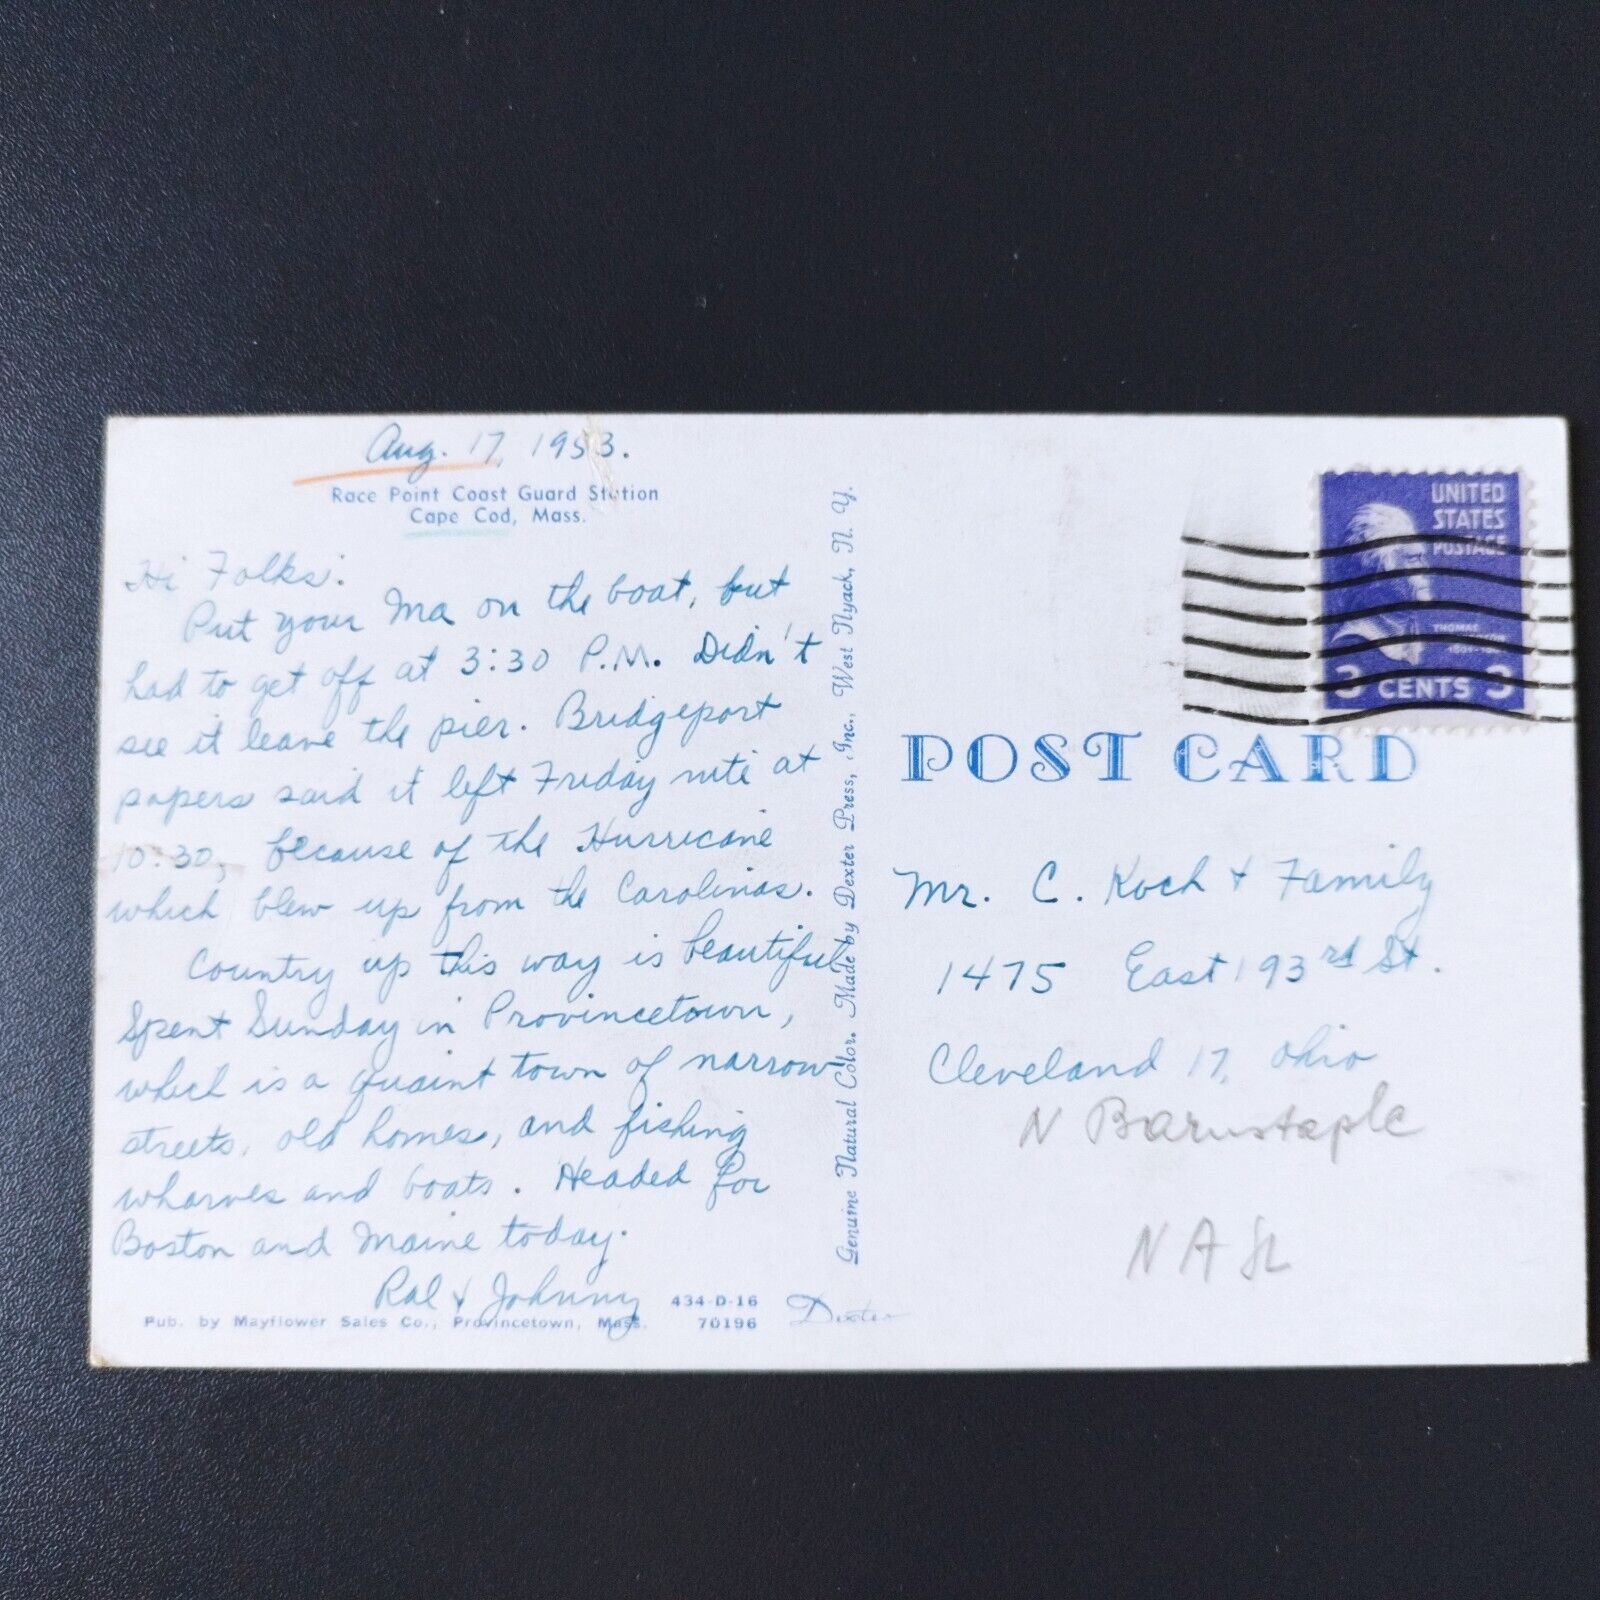 Aug. 17, 1953.
Race Point Coast Guard Station
Cape Cod, Mass.
Hi Folks:
Put your Ma on the boat, but
had to get off at 3:30 P.M. Didn't
see it leave the pier. Bridgeport
papers said it left Friday nite at
10:30, because of the Hurricane
which blew up from the Carolinas.
Country up this way is beautiful
Spent Sunday in Provincetown,
which is a quaint town of narrow
streets, old homes, and fishing
wharves and boats. Headed for
Boston and Maine today.
Ral & Johnny
434-D-16
Pub. by Mayflower Sales Co., Provincetown, Mass.
70196
Dexter
Genuine Natural Color. Made by Dexter Press, Inc., West Nyack, N. Y.
UNITED
STATES
POSTAGE
THOMAS
3 CENTS 3
POST CARD
Mr. C. Koch & Family
1475 East 193rd St.
Cleveland 17, Ohio
N Barnstaple